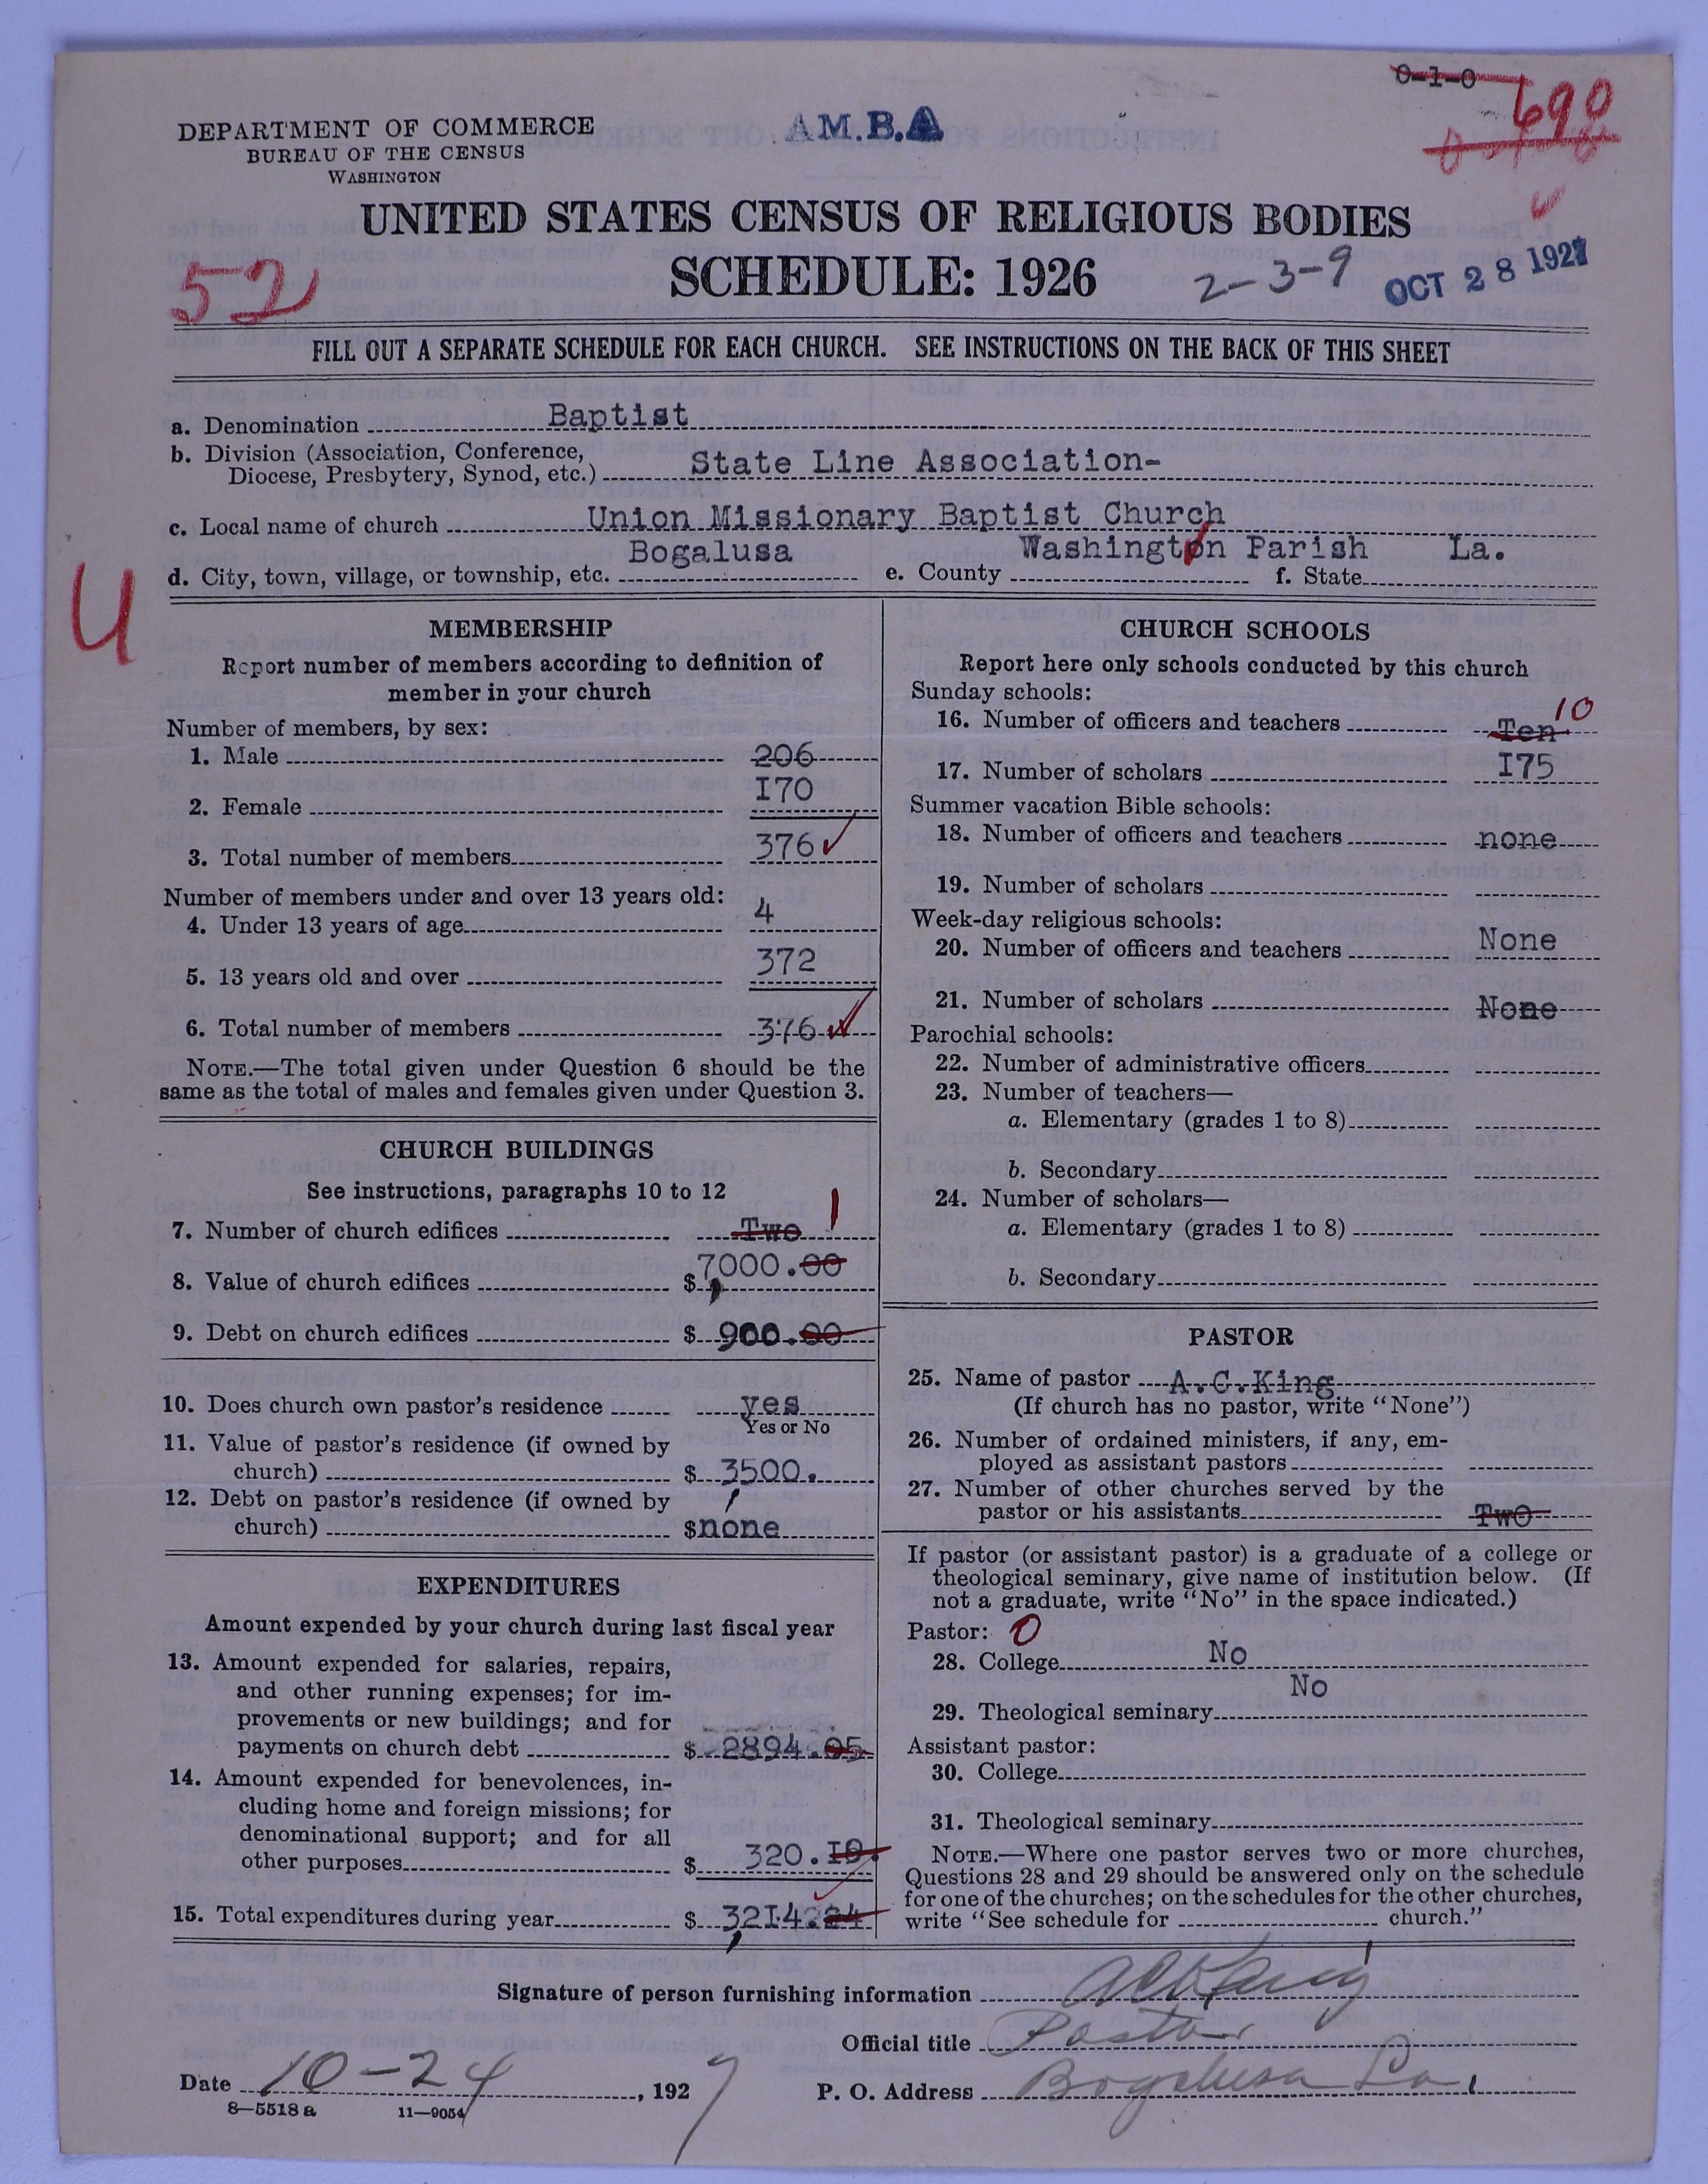 0-1-0
690
DEPARTMENT OF COMMERCE
BUREAU OF THE CENSUS
WASHINGTON
A.M.B.A
UNITED STATES CENSUS OF RELIGIOUS BODIES
SCHEDULE: 1926
52
2-3-9
OCT 28 1927
FILL OUT A SEPARATE SCHEDULE FOR EACH CHURCH. SEE INSTRUCTIONS ON THE BACK OF THIS SHEET
a. Denomination Baptist
b. Division (Association, Conference,
Diocese, Presbytery, Synod, etc.) State Line Association-
c. Local name of church Union Missionary Baptist Church
d. City, town, village, or township, etc. Bogalusa e. County Washington Parish f. State La.
U
MEMBERSHIP
Report number of members according to definition of
member in your church
Number of members, by sex:
1. Male 206
2. Female I70
3. Total number of members 376 ✓
Number of members under and over 13 years old:
4. Under 13 years of age 4
5. 13 years old and over 372
6. Total number of members 376 ✓
NOTE.—The total given under Question 6 should be the
same as the total of males and females given under Question 3.
CHURCH BUILDINGS
See instructions, paragraphs 10 to 12
7. Number of church edifices Two 1
8. Value of church edifices $ 7,000.00
9. Debt on church edifices $ 900.00
10. Does church own pastor's residence yes
Yes or No
11. Value of pastor's residence (if owned by
church) $ 3500.
12. Debt on pastor's residence (if owned by
church) $ none
EXPENDITURES
Amount expended by your church during last fiscal year
13. Amount expended for salaries, repairs,
and other running expenses; for im-
provements or new buildings; and for
payments on church debt $ 2894.05
14. Amount expended for benevolences, in-
cluding home and foreign missions; for
denominational support; and for all
other purposes $ 320.I9.
15. Total expenditures during year $ 3,2I4.24
CHURCH SCHOOLS
Report here only schools conducted by this church
Sunday schools:
16. Number of officers and teachers Ten 10
17. Number of scholars I75
Summer vacation Bible schools:
18. Number of officers and teachers none
19. Number of scholars
Week-day religious schools:
20. Number of officers and teachers None
21. Number of scholars None
Parochial schools:
22. Number of administrative officers
23. Number of teachers—
a. Elementary (grades 1 to 8)
b. Secondary
24. Number of scholars—
a. Elementary (grades 1 to 8)
b. Secondary
PASTOR
25. Name of pastor A.C.King
(If church has no pastor, write "None")
26. Number of ordained ministers, if any, em-
ployed as assistant pastors
27. Number of other churches served by the
pastor or his assistants Two
If pastor (or assistant pastor) is a graduate of a college or
theological seminary, give name of institution below. (If
not a graduate, write "No" in the space indicated.)
Pastor: 0
28. College No
29. Theological seminary No
Assistant pastor:
30. College
31. Theological seminary
NOTE.—Where one pastor serves two or more churches,
Questions 28 and 29 should be answered only on the schedule
for one of the churches; on the schedules for the other churches,
write "See schedule for church."
Signature of person furnishing information A C King
Official title Pastor
Date 10-24, 1927 P. O. Address Bogalusa La.
8—5518 a 11—9054